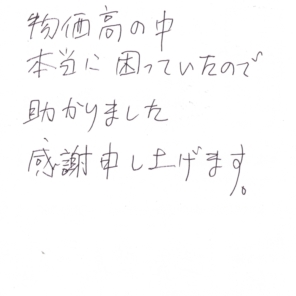 物価高の中
本当に困っていたので
助かりました
感謝申し上げます。